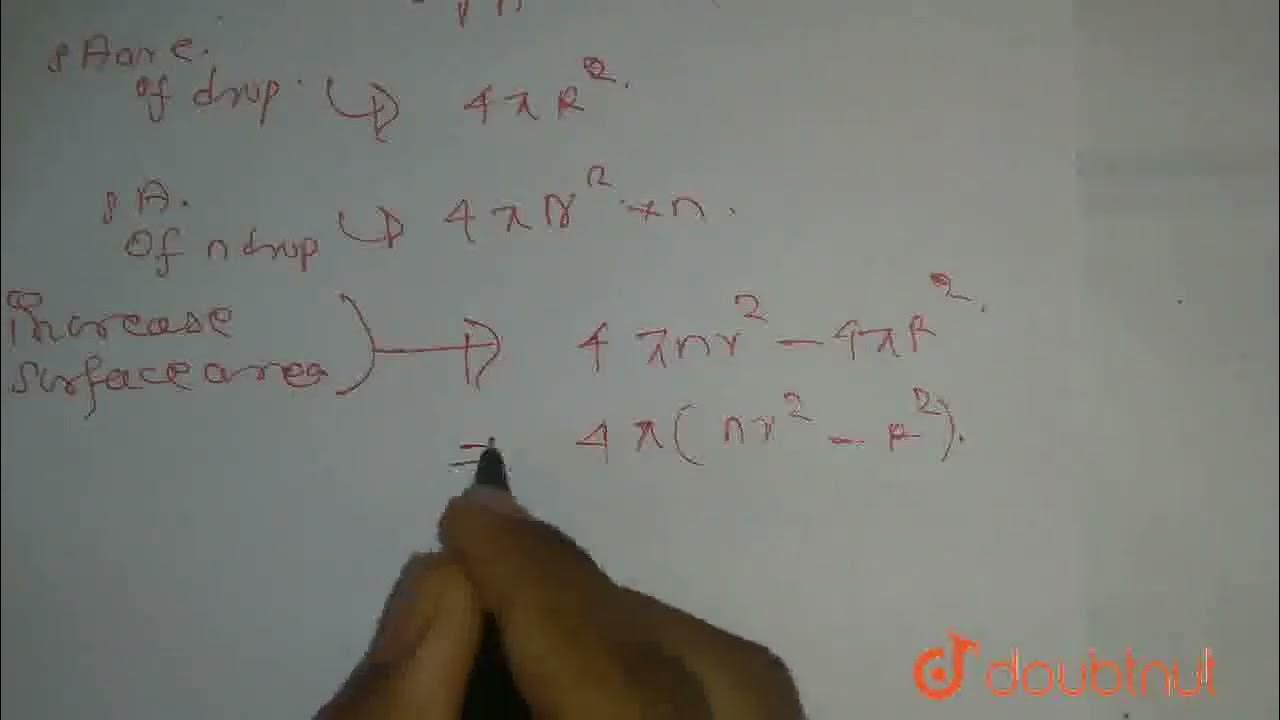 of drop. 4πR².
S A.
of n drop 4πr² × n.
increase
surface area 4πnr² - 4πR².
= 4π(nr² - R²).
doubtnut